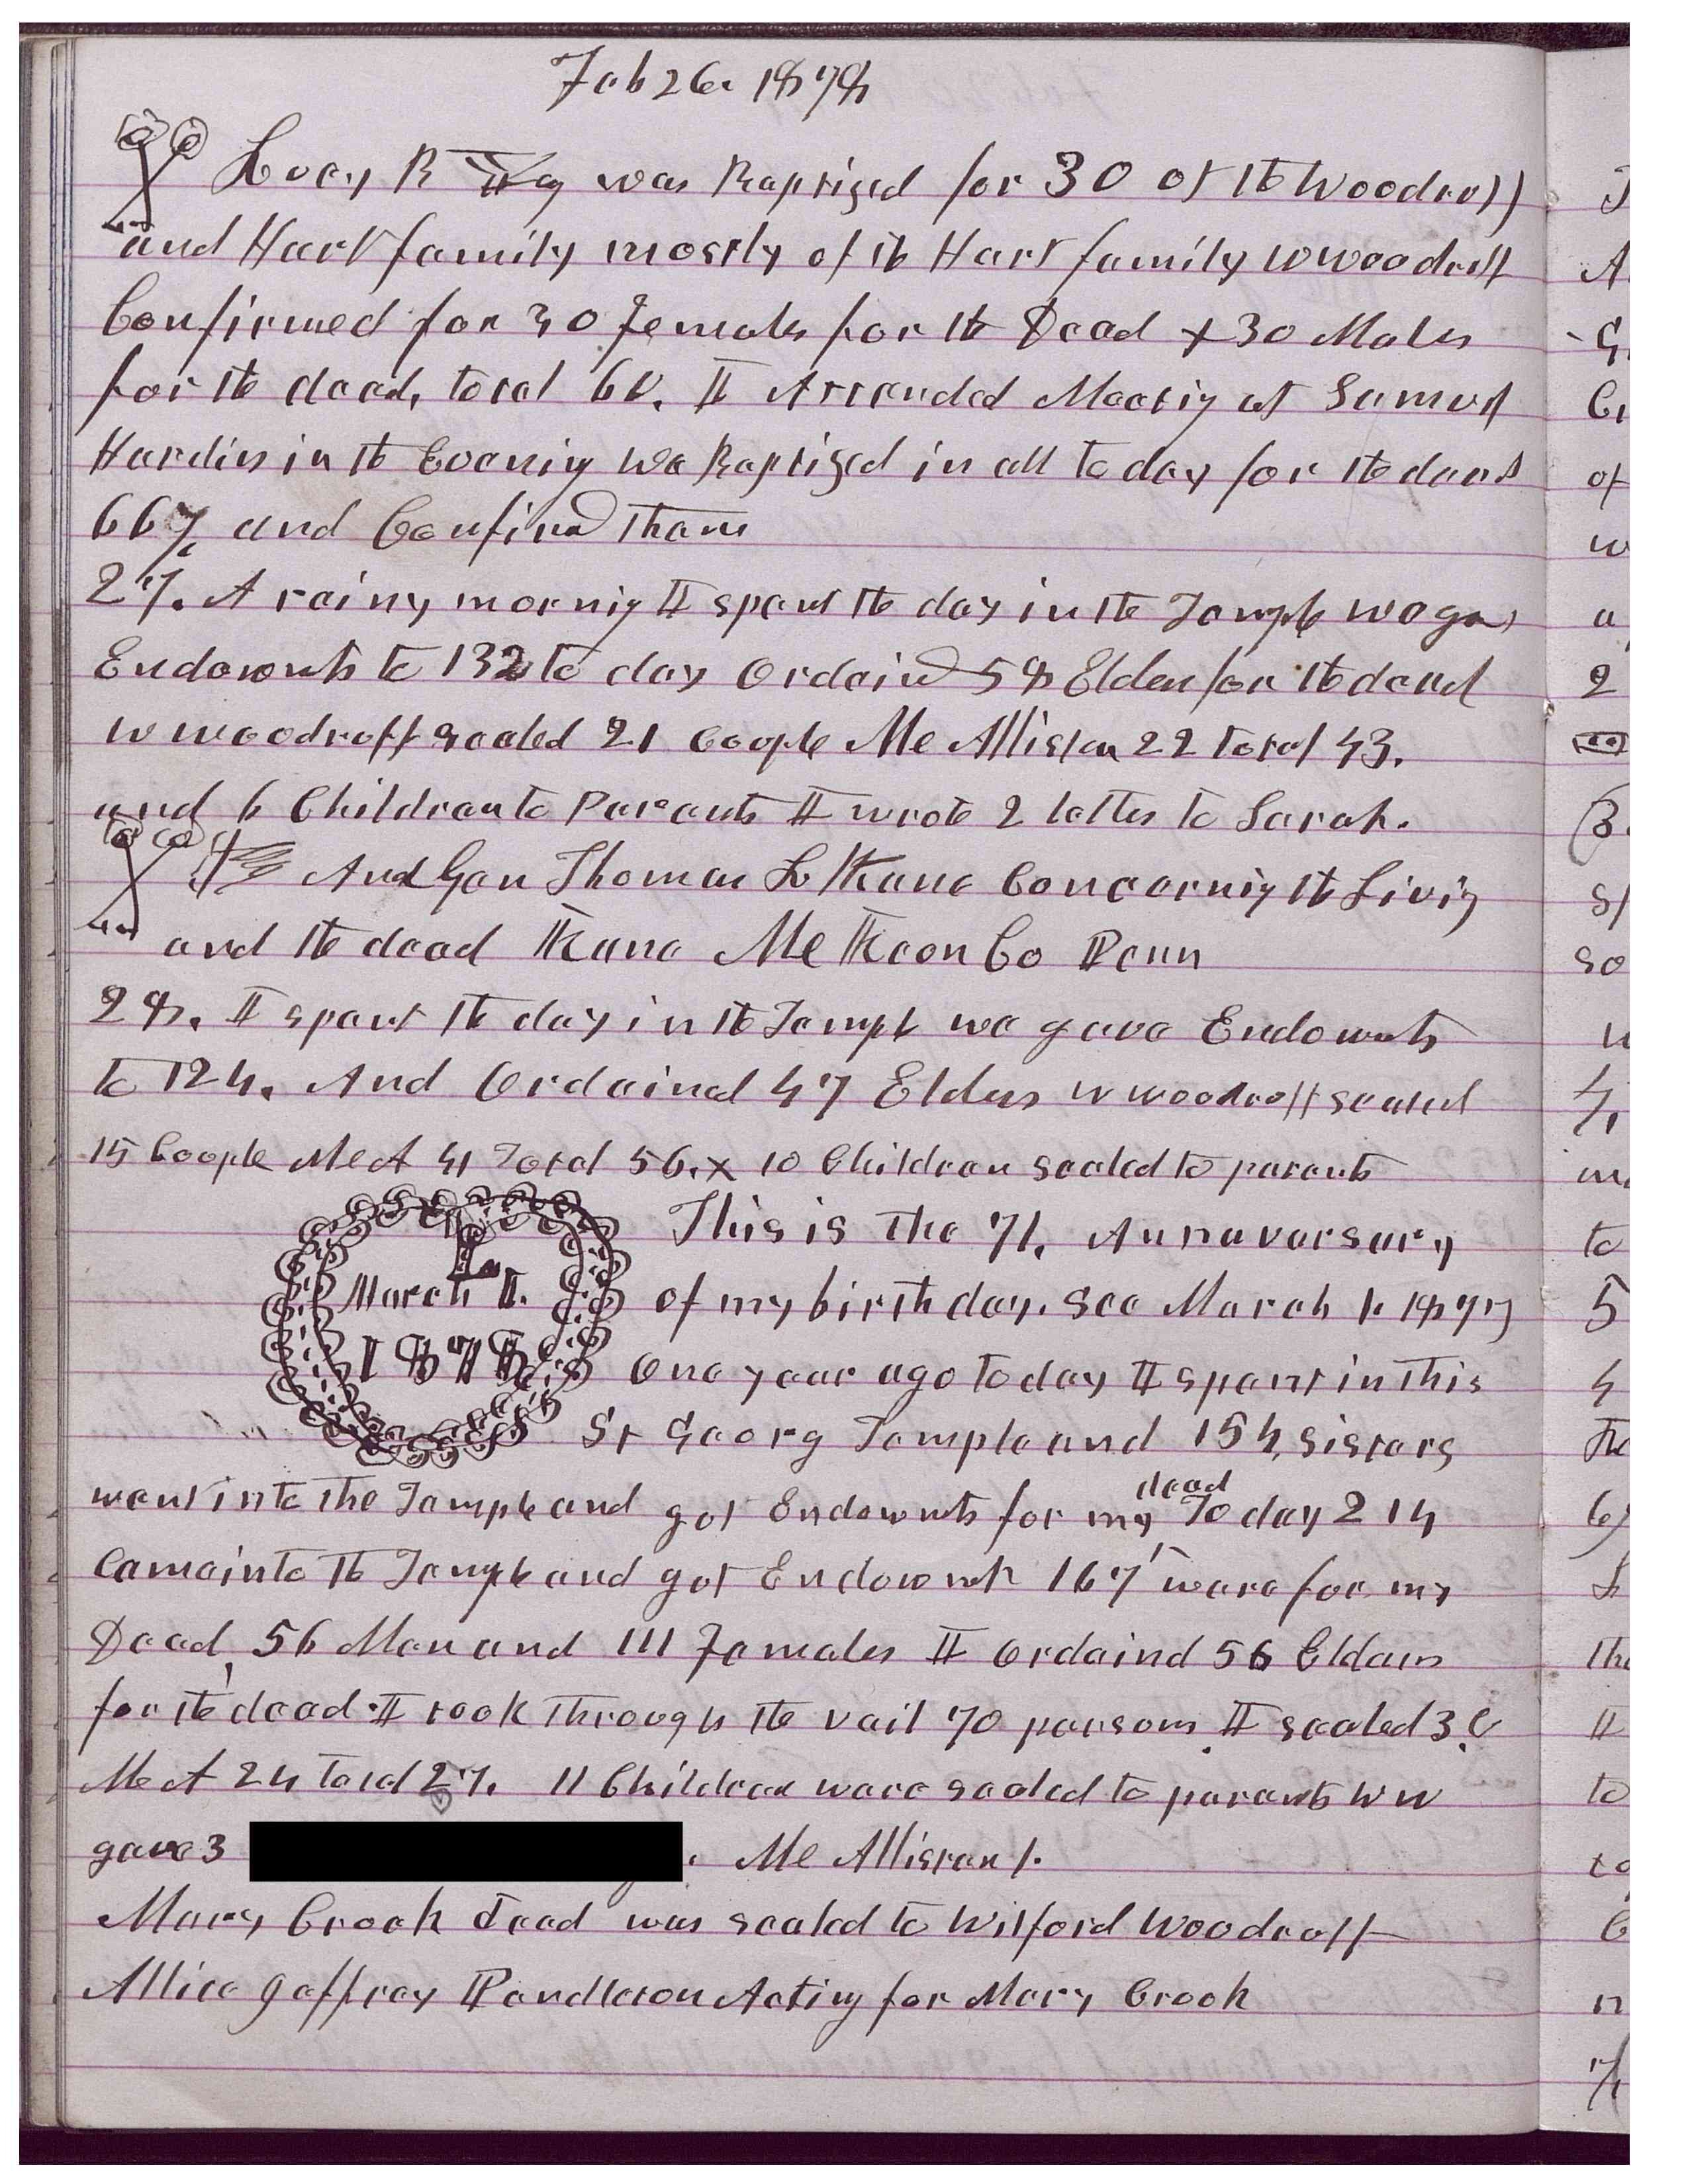 Feb 26. 1878
Lucy B was Baptized for 30 of the Woodruff
and Hart family mostly of the Hart family W Woodruff
Confirmed for 30 Females for the Dead + 30 Males
for the dead, total 60. I Attended Meetig at Samuel
Hardies in the Evenig We Baptized in all to day for the dead
667 and Confirmd them
27. A rainy mornig I spent the day in the Temple we gave
Endowmts to 132 to day Ordaind 58 Elders for the dead
W Woodruff sealed 21 Coople McAllister 22 total 43.
and 6 Children to Parents I wrote 2 letters to Sarah.
And Gen Thomas L Kane Concernig the Livig
and the dead Kane McKeon Co Penn
28. I spent the day in the Temple we gave Endowmts
to 124. And Ordained 47 Elders W Woodruff sealed
15 Coople McA 41 Total 56. + 10 Children sealed to parents
March 1. 1878
This is the 71, Annaversary
of my birth day. See March 1. 1877
One year ago to day I spent in this
St Georg Temple and 154, sisters
went into the Temple and got Endowmts for my dead To day 214
Came into the Temple and got Endowmts 167 were for my
Dead, 56 Men and 111 Females I ordaind 56 Elders
for the dead I took through the vail 70 persons. I sealed 3. C
McA 24 Total 27. 11 Children were sealed to parents W W
gave 3 . McAllister 1.
Mary Crook dead was sealed to Wilford Woodruff
Allice Jeffrey Pendleton Acting for Mary Crook